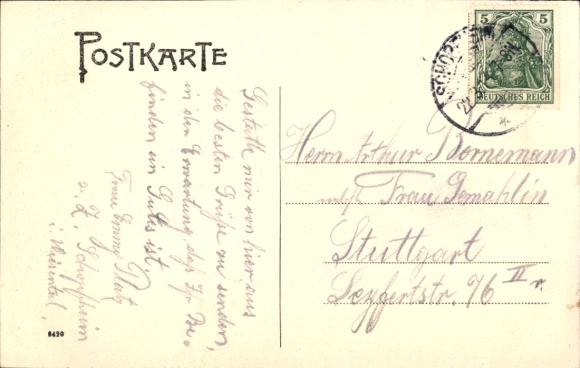 POSTKARTE
5 5
SCHOPFHEIM
DEUTSCHES REICH
Gestatte mir von hier aus
die besten Grüße zu senden,
in der Erwartung daß Ihr Be-
finden ein Gutes ist.
Frau Emmy
z. Z. Schopfheim
i. Wiesental.
Herrn Arthur Bornemann
Frau Gemahlin
Stuttgart
Seyfertstr. 76 II r.
8420